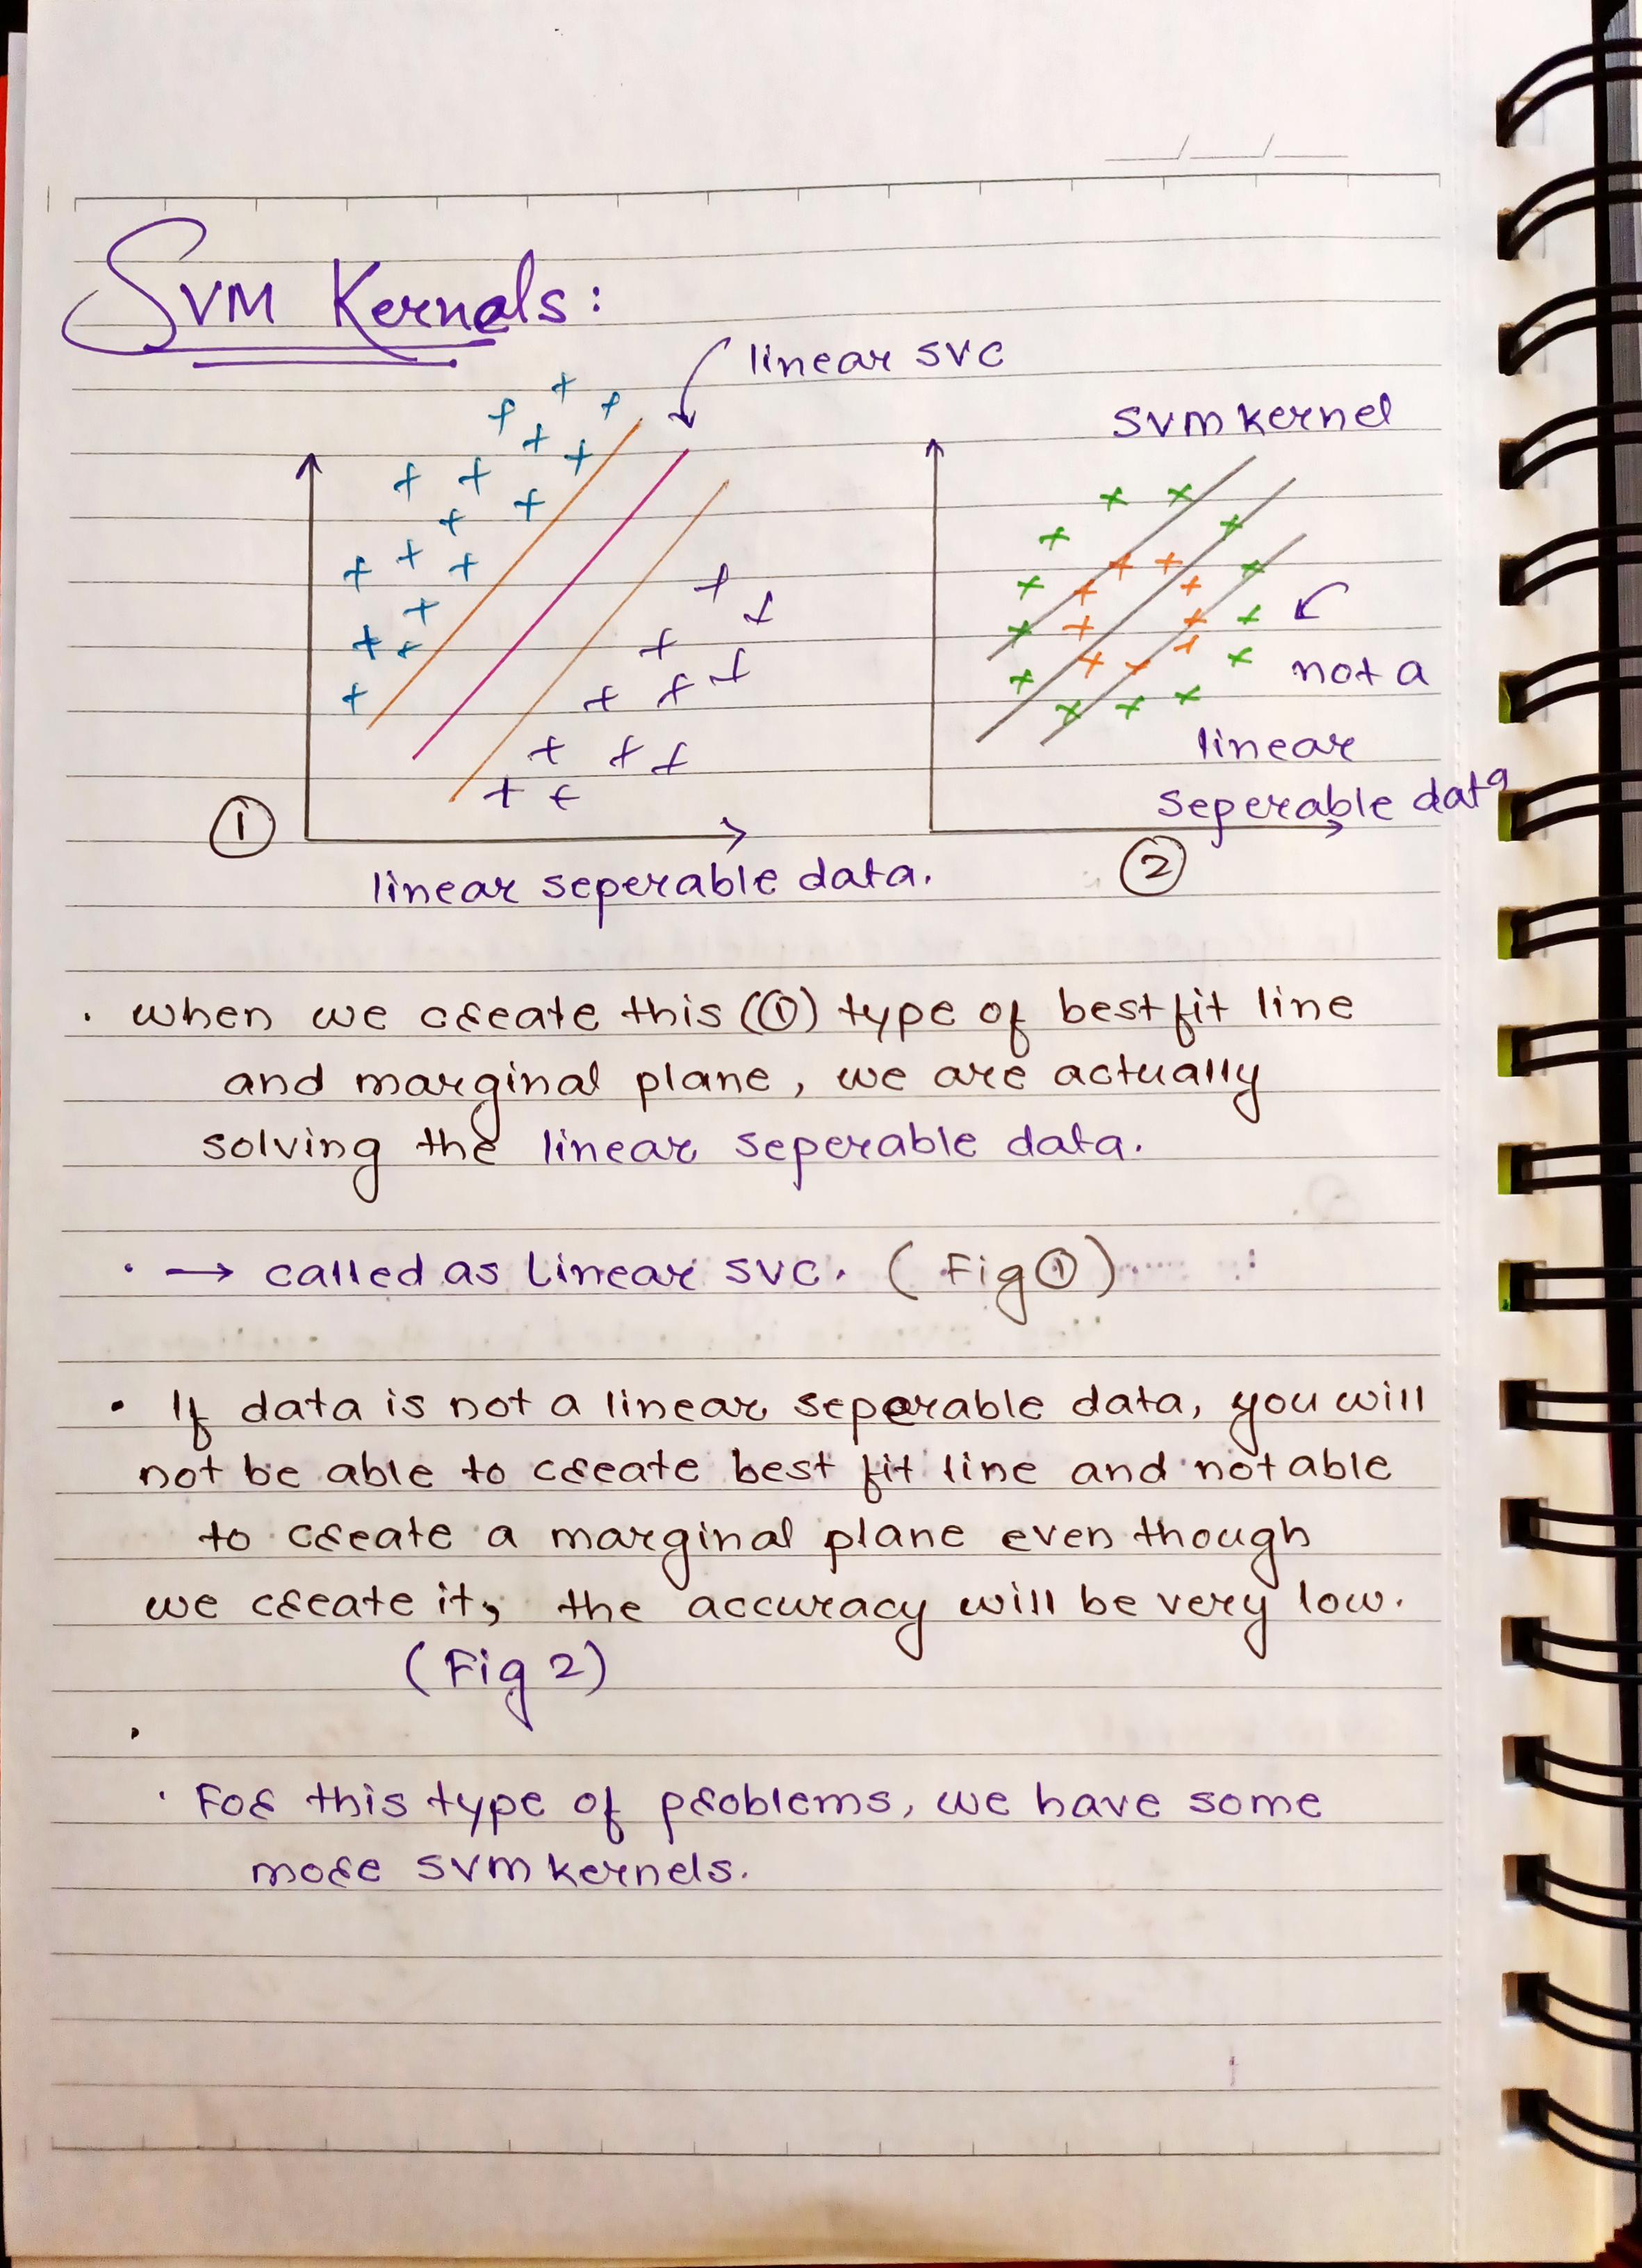 SVM Kernels:
linear SVC
SVM kernel
not a
linear
seperable data
①
②
linear seperable data.
· when we create this (①) type of best fit line
and marginal plane, we are actually
solving the linear seperable data.
· → called as Linear SVC. (Fig ①)
· If data is not a linear seperable data, you will
not be able to create best fit line and not able
to create a marginal plane even though
we create it, the accuracy will be very low.
(Fig 2)
· For this type of problems, we have some
more SVM kernels.